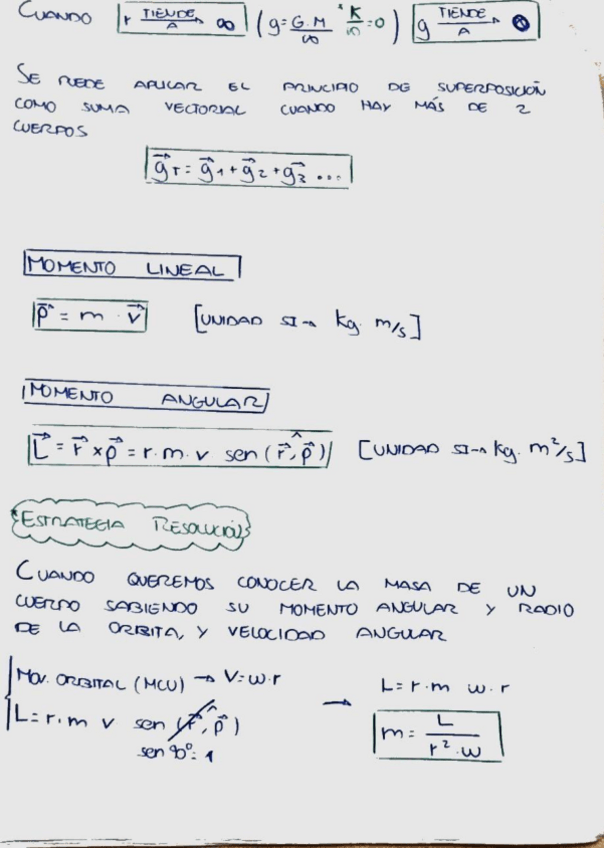 CUANDO r TIENDE A → ∞ (g = G.M/∞ * K/∞ = 0) g TIENDE A → 0
SE PUEDE APLICAR EL PRINCIPIO DE SUPERPOSICIÓN
COMO SUMA VECTORIAL CUANDO HAY MÁS DE 2
CUERPOS
g⃗T = g⃗1 + g⃗2 + g⃗3 ...
MOMENTO LINEAL
p⃗ = m · v⃗ [UNIDAD SI → kg. m/s]
MOMENTO ANGULAR
L⃗ = r⃗ x p⃗ = r. m. v sen (r⃗, p⃗) [UNIDAD SI → kg. m²/s]
ESTRATEGIA RESOLUCIÓN
CUANDO QUEREMOS CONOCER LA MASA DE UN
CUERPO SABIENDO SU MOMENTO ANGULAR Y RADIO
DE LA ORBITA, Y VELOCIDAD ANGULAR
MOV. ORBITAL (MCU) → V = w.r → L = r.m w.r
L = r.m v sen (r⃗, p⃗) m = L / r².w
sen 90º = 1